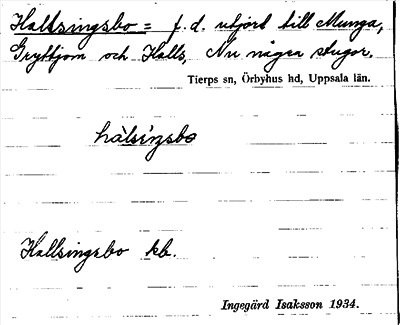 Hallsingsbo = f. d. utjord till Munga,
Gryttjom och Halls, Nu några stugor.
Tierps sn, Örbyhus hd, Uppsala län.
hàlsiŋsbo
Hallsingsbo kb.
Ingegärd Isaksson 1934.